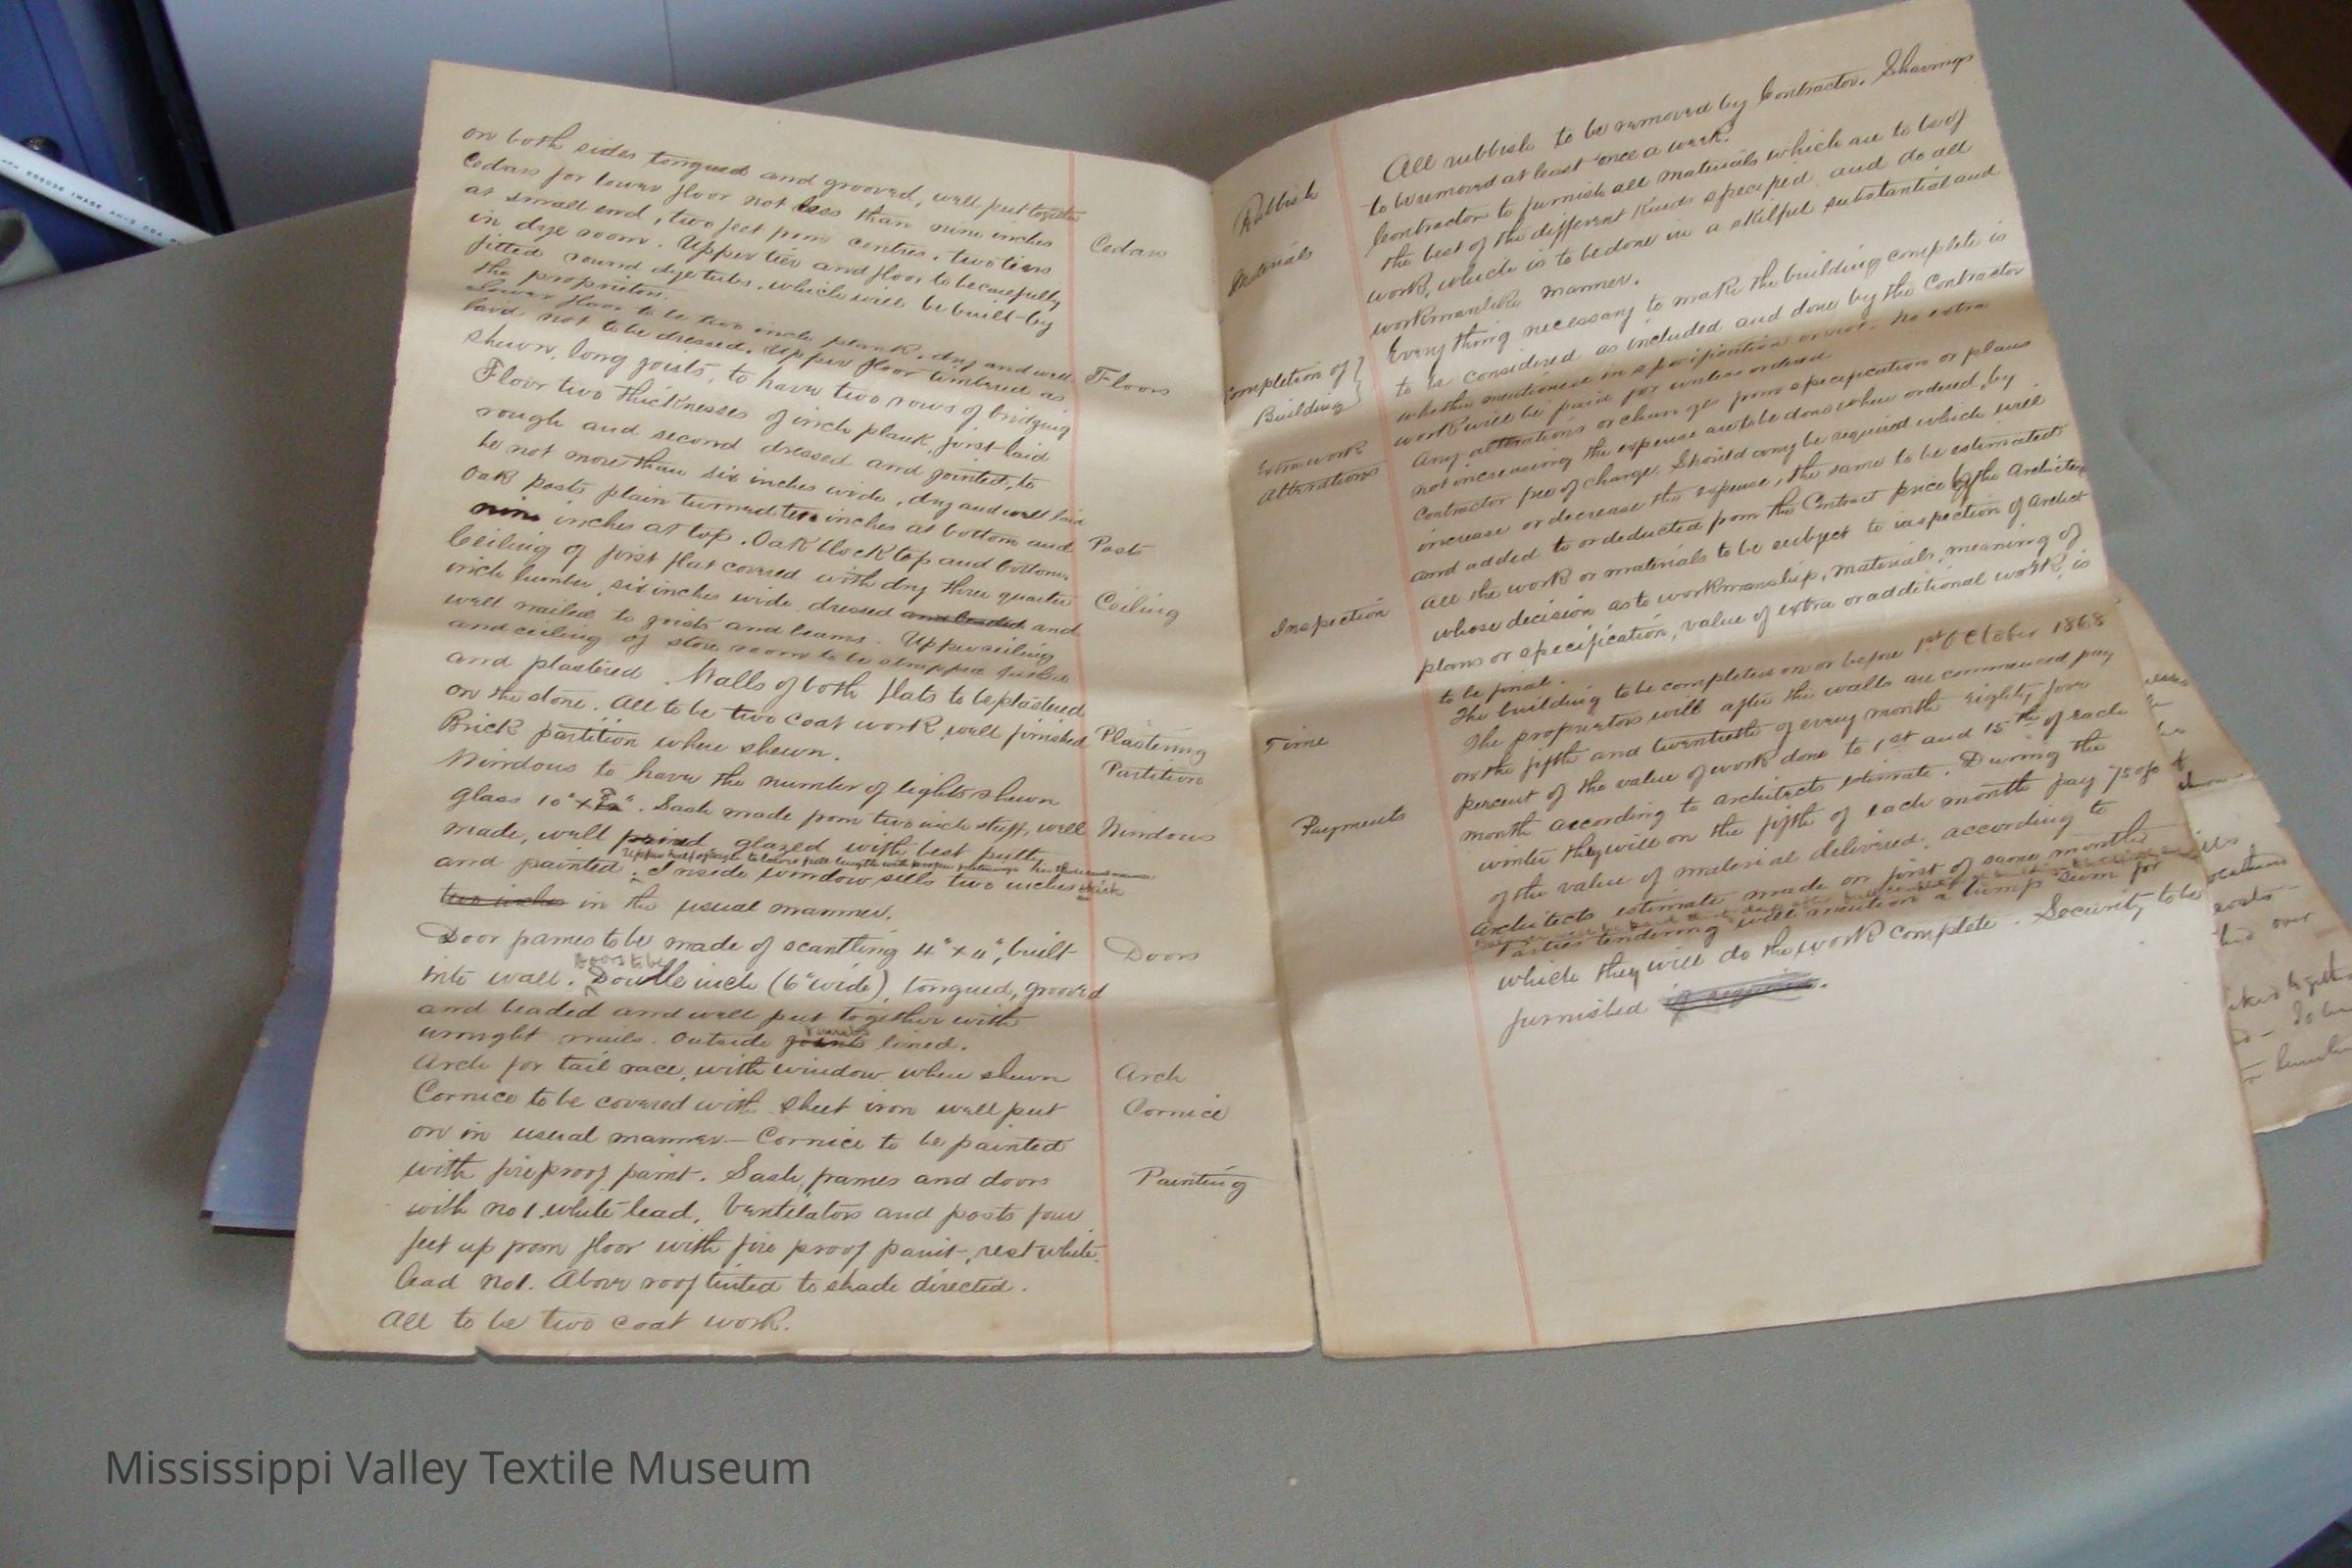 on both sides tongued and grooved, well put together
Cedars for lower floor not less than nine inches
Cedars
at small end, two feet from centres, two tiers
in dye room. Upper tier and floor to be carefully
fitted round dye tubs, which will be built by
the proprietors.
Lower floor to be two inch plank, dry and well
Floors
laid not to be dressed. Upper floor timbered as
shewn, long joists, to have two rows of bridging
Floor two thicknesses of inch plank, first laid
rough and second dressed and jointed, to
be not more than six inches wide, dry and well laid
Oak posts plain turned ten inches at bottom and
Posts
nine inches at top. Oak block top and bottom
Ceiling of first flat covered with dry three quarter
Ceiling
inch lumber, six inches wide, dressed and beaded and
well nailed to joists and beams. Upper ceiling
and ceiling of store room to be strapped lathed
and plastered. Walls of both flats to be plastered
on the stone. All to be two coat work, well finished
Plastering
Brick partition where shewn.
Partition
Windows to have the number of lights shewn
glass 10" x . Sash made from two inch stuff, well
Windows
made, well primed glazed with best putty
and painted. Inside window sills two inches thick
two inches in the usual manner.
Door frames to be made of scantling 4" x 4", built
Doors
doors to be
into wall. Double inch (6" wide), tongued, grooved
and beaded and well put together with
wrought nails. Outside joints lined.
Arch for tail race, with window where shewn
Arch
Cornice to be covered with sheet iron well put
Cornice
on in usual manner – Cornice to be painted
with fire proof paint. Sash, frames and doors
Painting
with no 1 white lead, Ventilators and posts four
feet up from floor with fire proof paint, rest white
lead No 1. Above roof tinted to shade directed.
All to be two coat work.
Rubbish
All rubbish to be removed by Contractor. Shavings
to be removed at least once a week.
Materials
Contractor to furnish all materials which are to be of
the best of the different kinds specified and do all
work, which is to be done in a skilful substantial and
workmanlike manner.
Completion of
Building
Everything necessary to make the building complete is
to be considered as included and done by the Contractor
whether mentioned in specification or not. No extra
Extra work
work will be paid for unless ordered.
Alterations
Any alterations or changes from specification or plans
not increasing the expense are to be done when ordered, by
Contractor free of charge. Should any be required which will
increase or decrease the expense, the same to be estimated
and added to or deducted from the Contract price by the Architect
Inspection
All the work or materials to be subject to inspection of Architect
whose decision as to workmanship, materials, meaning of
plans or specification, value of extra or additional work, is
to be final.
Time
The building to be completed on or before 1st October 1868
Payments
The proprietors will after the walls are commenced pay
on the fifth and twentieth of every month eighty five
percent of the value of work done to 1st and 15th of each
month according to architects estimate. During the
winter they will on the fifth of each month pay 75 o/o
of the value of material delivered, according to
Architects estimate made on first of same month
Parties tendering will mention a lump sum for
which they will do the work complete. Security to be
furnished if required.
Mississippi Valley Textile Museum